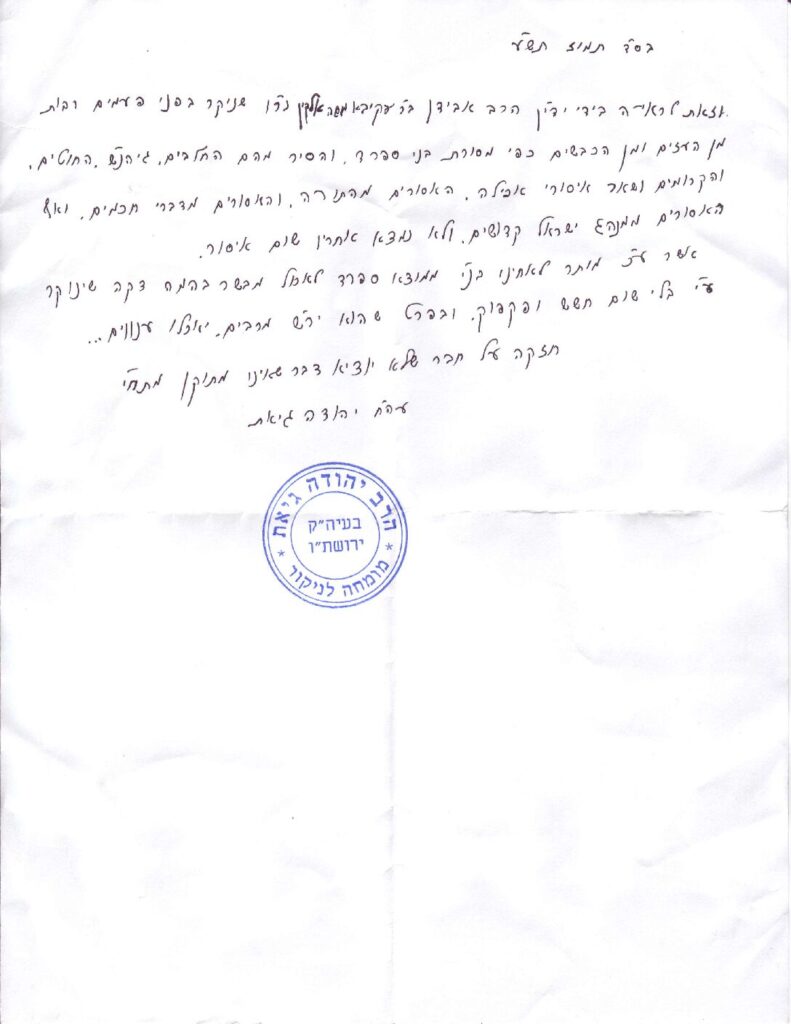 בס"ד תמוז תש"ע
וזאת לראיה בידי ידי"ן הרב אבידן בר עקיבא משה אלקין נר"ו שניקר בפני פעמים רבות
מן העזים ומן הכבשים כפי מסורת בני ספרד, והסיר מהם החלבים, גיהנ"ש, החוטים,
והקרומים ושאר איסורי אכילה, האסורים מהתורה, והאסורים מדברי חכמים, ואף
האסורים ממנהג ישראל קדושים, ולא נמצא אחריו שום איסור.
אשר ע"כ מותר לאחינו בנ"י ממוצא ספרד לאכול מבשר בהמה דקה שינוקר
ע"י בלי שום חשש ופקפוק, ובפרט שהוא ירא מרבים, יאכלו ענוים...
חזקה על חבר שלא יוציא דבר שאינו מתוקן מתח"י
עה"ח יהודה גיאת
הרב יהודה גיאת
בעיה"ק
ירושת"ו
* מומחה לניקור *